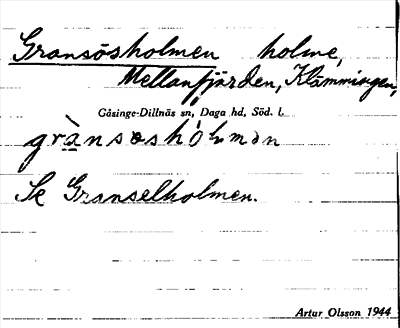 Gransösholmen holme,
Mellanfjärden, Klämmingen,
Gåsinge-Dillnäs sn, Daga hd, Söd. l.
grànsoshòlmən
Se Granselholmen.
Artur Olsson 1944